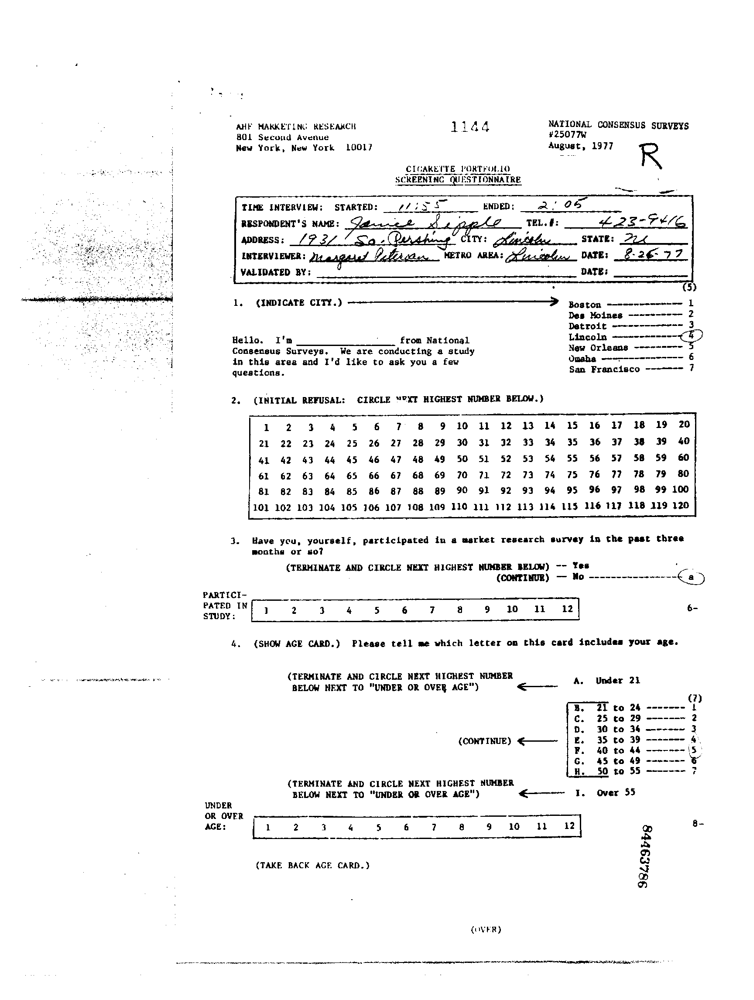 AHF MARKETING RESEARCH
801 Second Avenue
New York, New York 10017
1144
NATIONAL CONSENSUS SURVEYS
#25077W
August, 1977
R
CIGARETTE PORTFOLIO
SCREENING QUESTIONNAIRE
TIME INTERVIEW: STARTED: 11:55 ENDED: 2:05
RESPONDENT'S NAME: Janice Sipple TEL.#: 423-9416
ADDRESS: 1931 So. Pershing CITY: Lincoln STATE:
INTERVIEWER: Margaret METRO AREA: Lincoln DATE: 8-26-77
VALIDATED BY: DATE:
(5)
1. (INDICATE CITY.)
Boston ---------- 1
Des Moines --------- 2
Detroit ------------ 3
Lincoln ------------ 4
New Orleans -------- 5
Omaha -------------- 6
San Francisco ------- 7
Hello. I'm ____________ from National
Consensus Surveys. We are conducting a study
in this area and I'd like to ask you a few
questions.
2. (INITIAL REFUSAL: CIRCLE NEXT HIGHEST NUMBER BELOW.)
1 2 3 4 5 6 7 8 9 10 11 12 13 14 15 16 17 18 19 20
21 22 23 24 25 26 27 28 29 30 31 32 33 34 35 36 37 38 39 40
41 42 43 44 45 46 47 48 49 50 51 52 53 54 55 56 57 58 59 60
61 62 63 64 65 66 67 68 69 70 71 72 73 74 75 76 77 78 79 80
81 82 83 84 85 86 87 88 89 90 91 92 93 94 95 96 97 98 99 100
101 102 103 104 105 106 107 108 109 110 111 112 113 114 115 116 117 118 119 120
3. Have you, yourself, participated in a market research survey in the past three
months or so?
(TERMINATE AND CIRCLE NEXT HIGHEST NUMBER BELOW) -- Yes
(CONTINUE) — No ---------------- a
PARTICI-
PATED IN
STUDY: 1 2 3 4 5 6 7 8 9 10 11 12 6-
4. (SHOW AGE CARD.) Please tell me which letter on this card includes your age.
(TERMINATE AND CIRCLE NEXT HIGHEST NUMBER
BELOW NEXT TO "UNDER OR OVER AGE") A. Under 21
(7)
B. 21 to 24 ------- 1
C. 25 to 29 ------- 2
D. 30 to 34 ------- 3
(CONTINUE) E. 35 to 39 ------- 4
F. 40 to 44 ------- 5
G. 45 to 49 ------- 6
H. 50 to 55 ------- 7
(TERMINATE AND CIRCLE NEXT HIGHEST NUMBER
BELOW NEXT TO "UNDER OR OVER AGE") I. Over 55
UNDER
OR OVER
AGE: 1 2 3 4 5 6 7 8 9 10 11 12 8-
84463786
(TAKE BACK AGE CARD.)
(OVER)